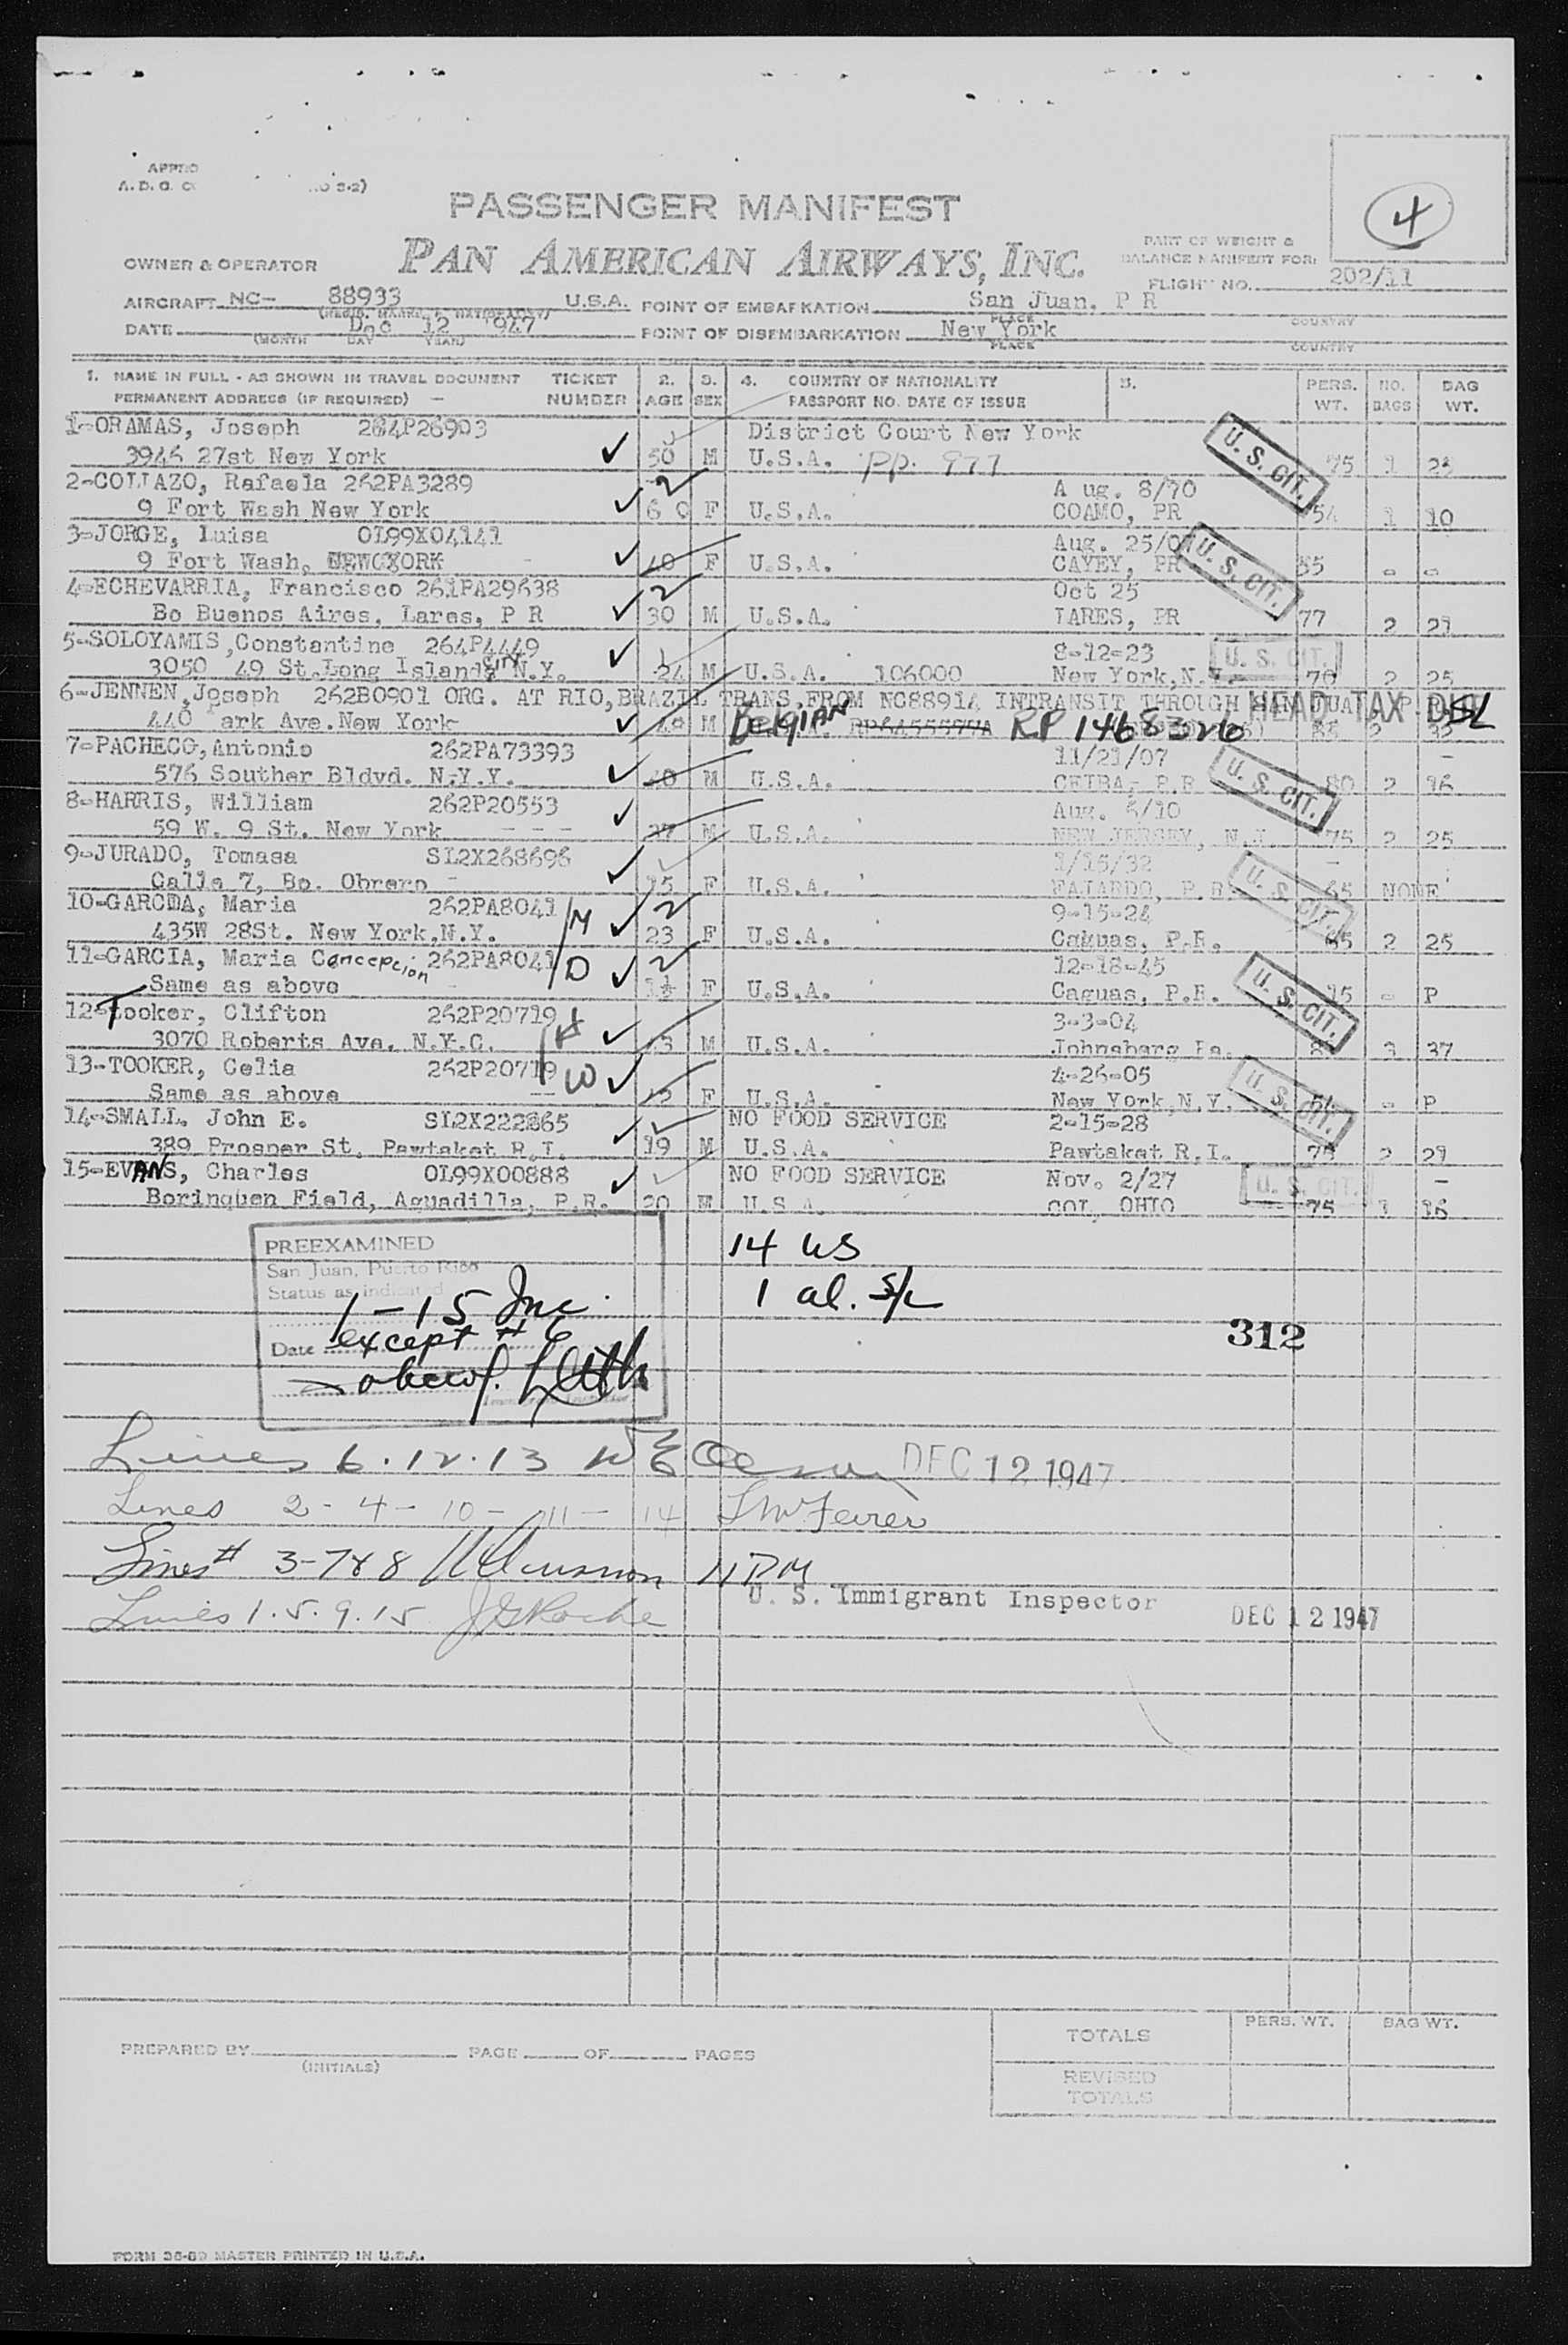 PASSENGER MANIFEST
PAN AMERICAN AIRWAYS, INC.
4
OWNER & OPERATOR
PART OF WEIGHT &
BALANCE MANIFEST FOR:
FLIGHT NO. 202/11
AIRCRAFT NC- 88933 U.S.A. POINT OF EMBARKATION San Juan, P R
PLACE COUNTRY
DATE Dec 12 1947 POINT OF DISEMBARKATION New York
(MONTH DAY YEAR) PLACE COUNTRY
1. NAME IN FULL - AS SHOWN IN TRAVEL DOCUMENT TICKET 2. 3. 4. COUNTRY OF NATIONALITY 5. PERS. NO. BAG
PERMANENT ADDRESS (IF REQUIRED) NUMBER AGE SEX PASSPORT NO. DATE OF ISSUE WT. BAGS WT.
1-ORAMAS, Joseph 264P26903 District Court New York
3946 27st New York 50 M U.S.A. pp. 977 U. S. CIT. 75 1 23
2-COLLAZO, Rafaela 262PA3289 2 A ug. 8/70
9 Fort Wash New York 60 F U.S.A. COAMO, PR 54 1 10
3-JORGE, Luisa OL99X04141 Aug. 25/07
9 Fort Wash, NEW YORK 40 F U.S.A. CAYEY, PR U. S. CIT. 55 - -
4-ECHEVARRIA, Francisco 261PA29638 2 Oct 25
Bo Buenos Aires, Lares, P R 30 M U.S.A. LARES, PR 77 2 29
5-SOLOYAMIS,Constantine 264P4449 8-12-23
3050 49 St.Long Island City N.Y. 24 M U.S.A. 106000 New York,N.Y. U. S. CIT. 70 2 25
6-JENNEN,Joseph 262B0901 ORG. AT RIO,BRAZIL TRANS.FROM NC88914 INTRANSIT THROUGH SAN JUAN, P.R. HEAD TAX
440 Park Ave.New York 48 M BELGIAN RP 1468326 85 2 32
7-PACHECO,Antonio 262PA73393 11/21/07
576 Souther Bldvd. N.Y.Y. 40 M U.S.A. CEIBA, P.R U. S. CIT. 80 2 16
8-HARRIS, William 262P20553 Aug. 6/10
59 W. 9 St. New York - - - 37 M U.S.A. NEW JERSEY, N.J. 75 2 25
9-JURADO, Tomasa SL2X268696 1/15/32
Calle 7, Bo. Obrero 15 F U.S.A. FAJARDO, P.R. U. S. CIT. 65 NONE
10-GARCIA, Maria 262PA8041 M 2 9-15-24
435W 28St. New York,N.Y. 23 F U.S.A. Caguas, P.R. 65 2 25
11-GARCIA, Maria Concepcion 262PA8041 D 2 12-18-45
Same as above 1½ F U.S.A. Caguas, P.R. U. S. CIT. 15 - P
12-Tooker, Clifton 262P20719 H 3-3-04
3070 Roberts Ave. N.Y.C. 43 M U.S.A. Johnsbarg Pa. 3 37
13-TOOKER, Celia 262P20719 W 4-26-05
Same as above 42 F U.S.A. New York,N.Y. U. S. CIT. - P
14-SMALL, John E. SL2X222865 NO FOOD SERVICE 2-15-28
389 Prosper St. Pawtaket R.I. 19 M U.S.A. Pawtaket R.I. 75 2 29
15-EVANS, Charles OL99X00888 NO FOOD SERVICE Nov. 2/27
Borinquen Field, Aguadilla, P.R. 20 M U.S.A. COL, OHIO U. S. CIT. 75 1 16
PREEXAMINED
San Juan, Puerto Rico
Status as indicated
1-15 Inc.
Date except # 6
14 US
1 al. S/L
312
Lines 6.12.13 DEC 12 1947
Lines 2-4-10-11-14
Lines # 3-7&8
U. S. Immigrant Inspector
Lines 1.5.9.15 J G Roche DEC 12 1947
TOTALS PERS. WT. BAG WT.
PREPARED BY (INITIALS) PAGE OF PAGES
REVISED TOTALS
FORM 36-89 MASTER PRINTED IN U.S.A.